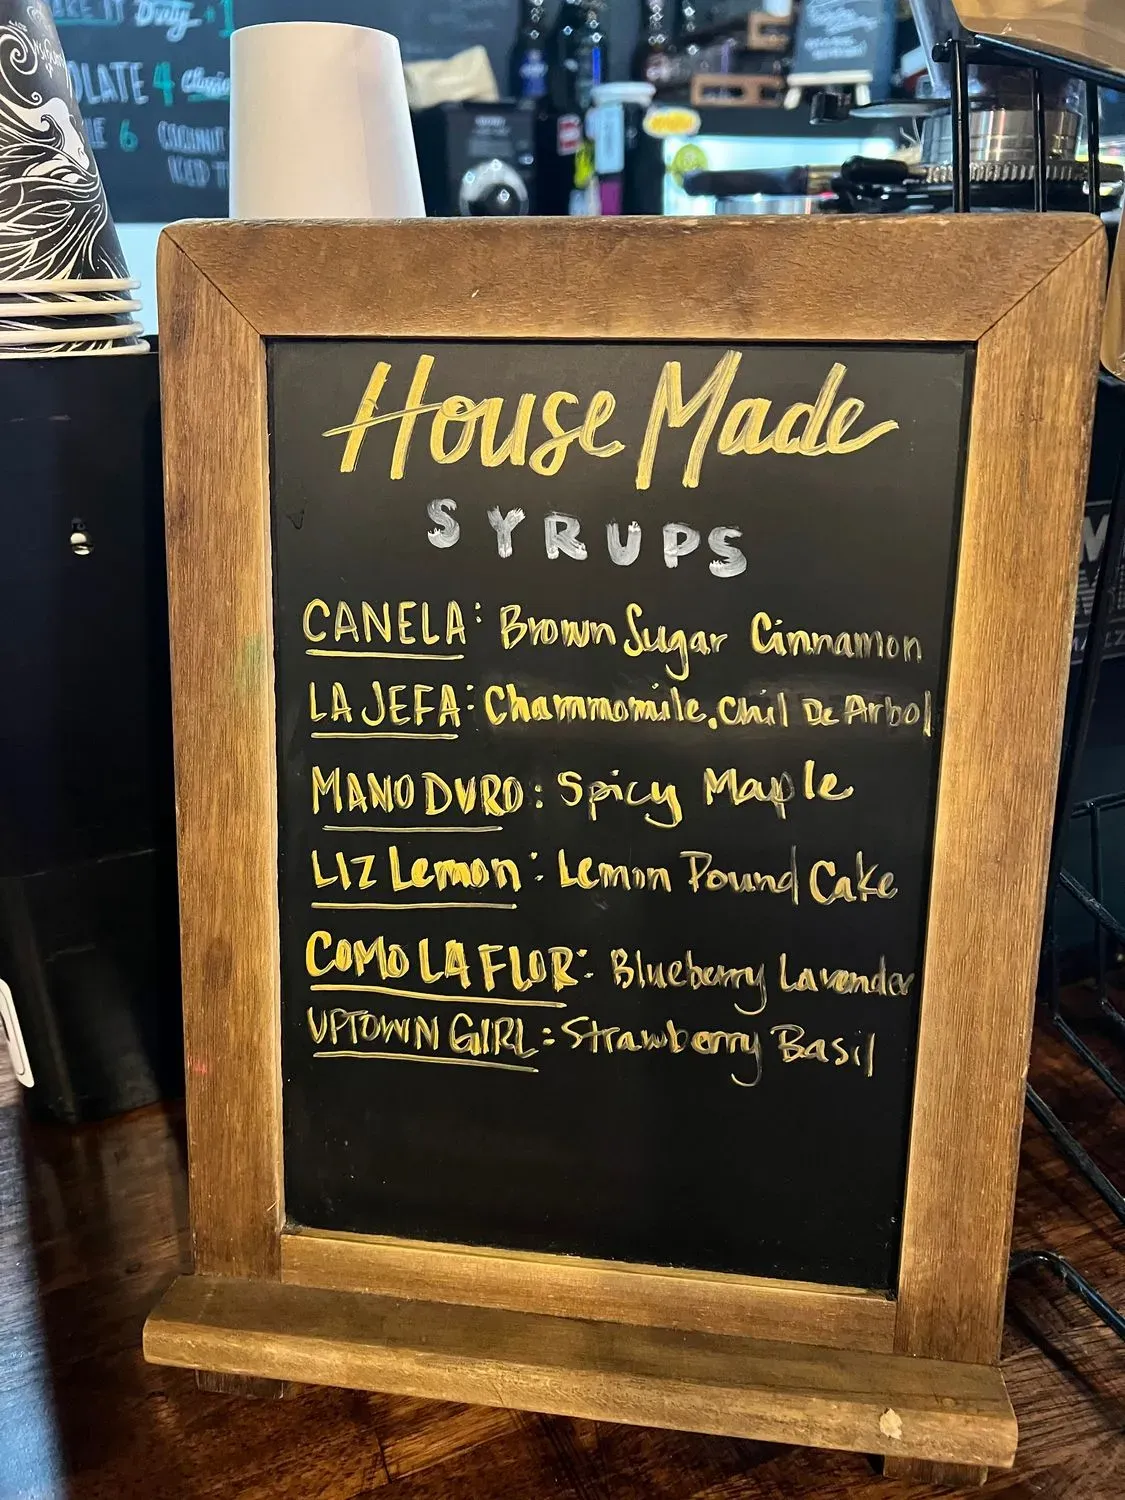 Dirty + 1
OLATE 4 Classic
6 COCONUT
ICED
House Made
SYRUPS
CANELA: Brown Sugar Cinnamon
LA JEFA: Chammomile, Chil De Arbol
MANO DURO: Spicy Maple
LIZ Lemon: Lemon Pound Cake
COMO LA FLOR: Blueberry Lavender
UPTOWN GIRL: Strawberry Basil